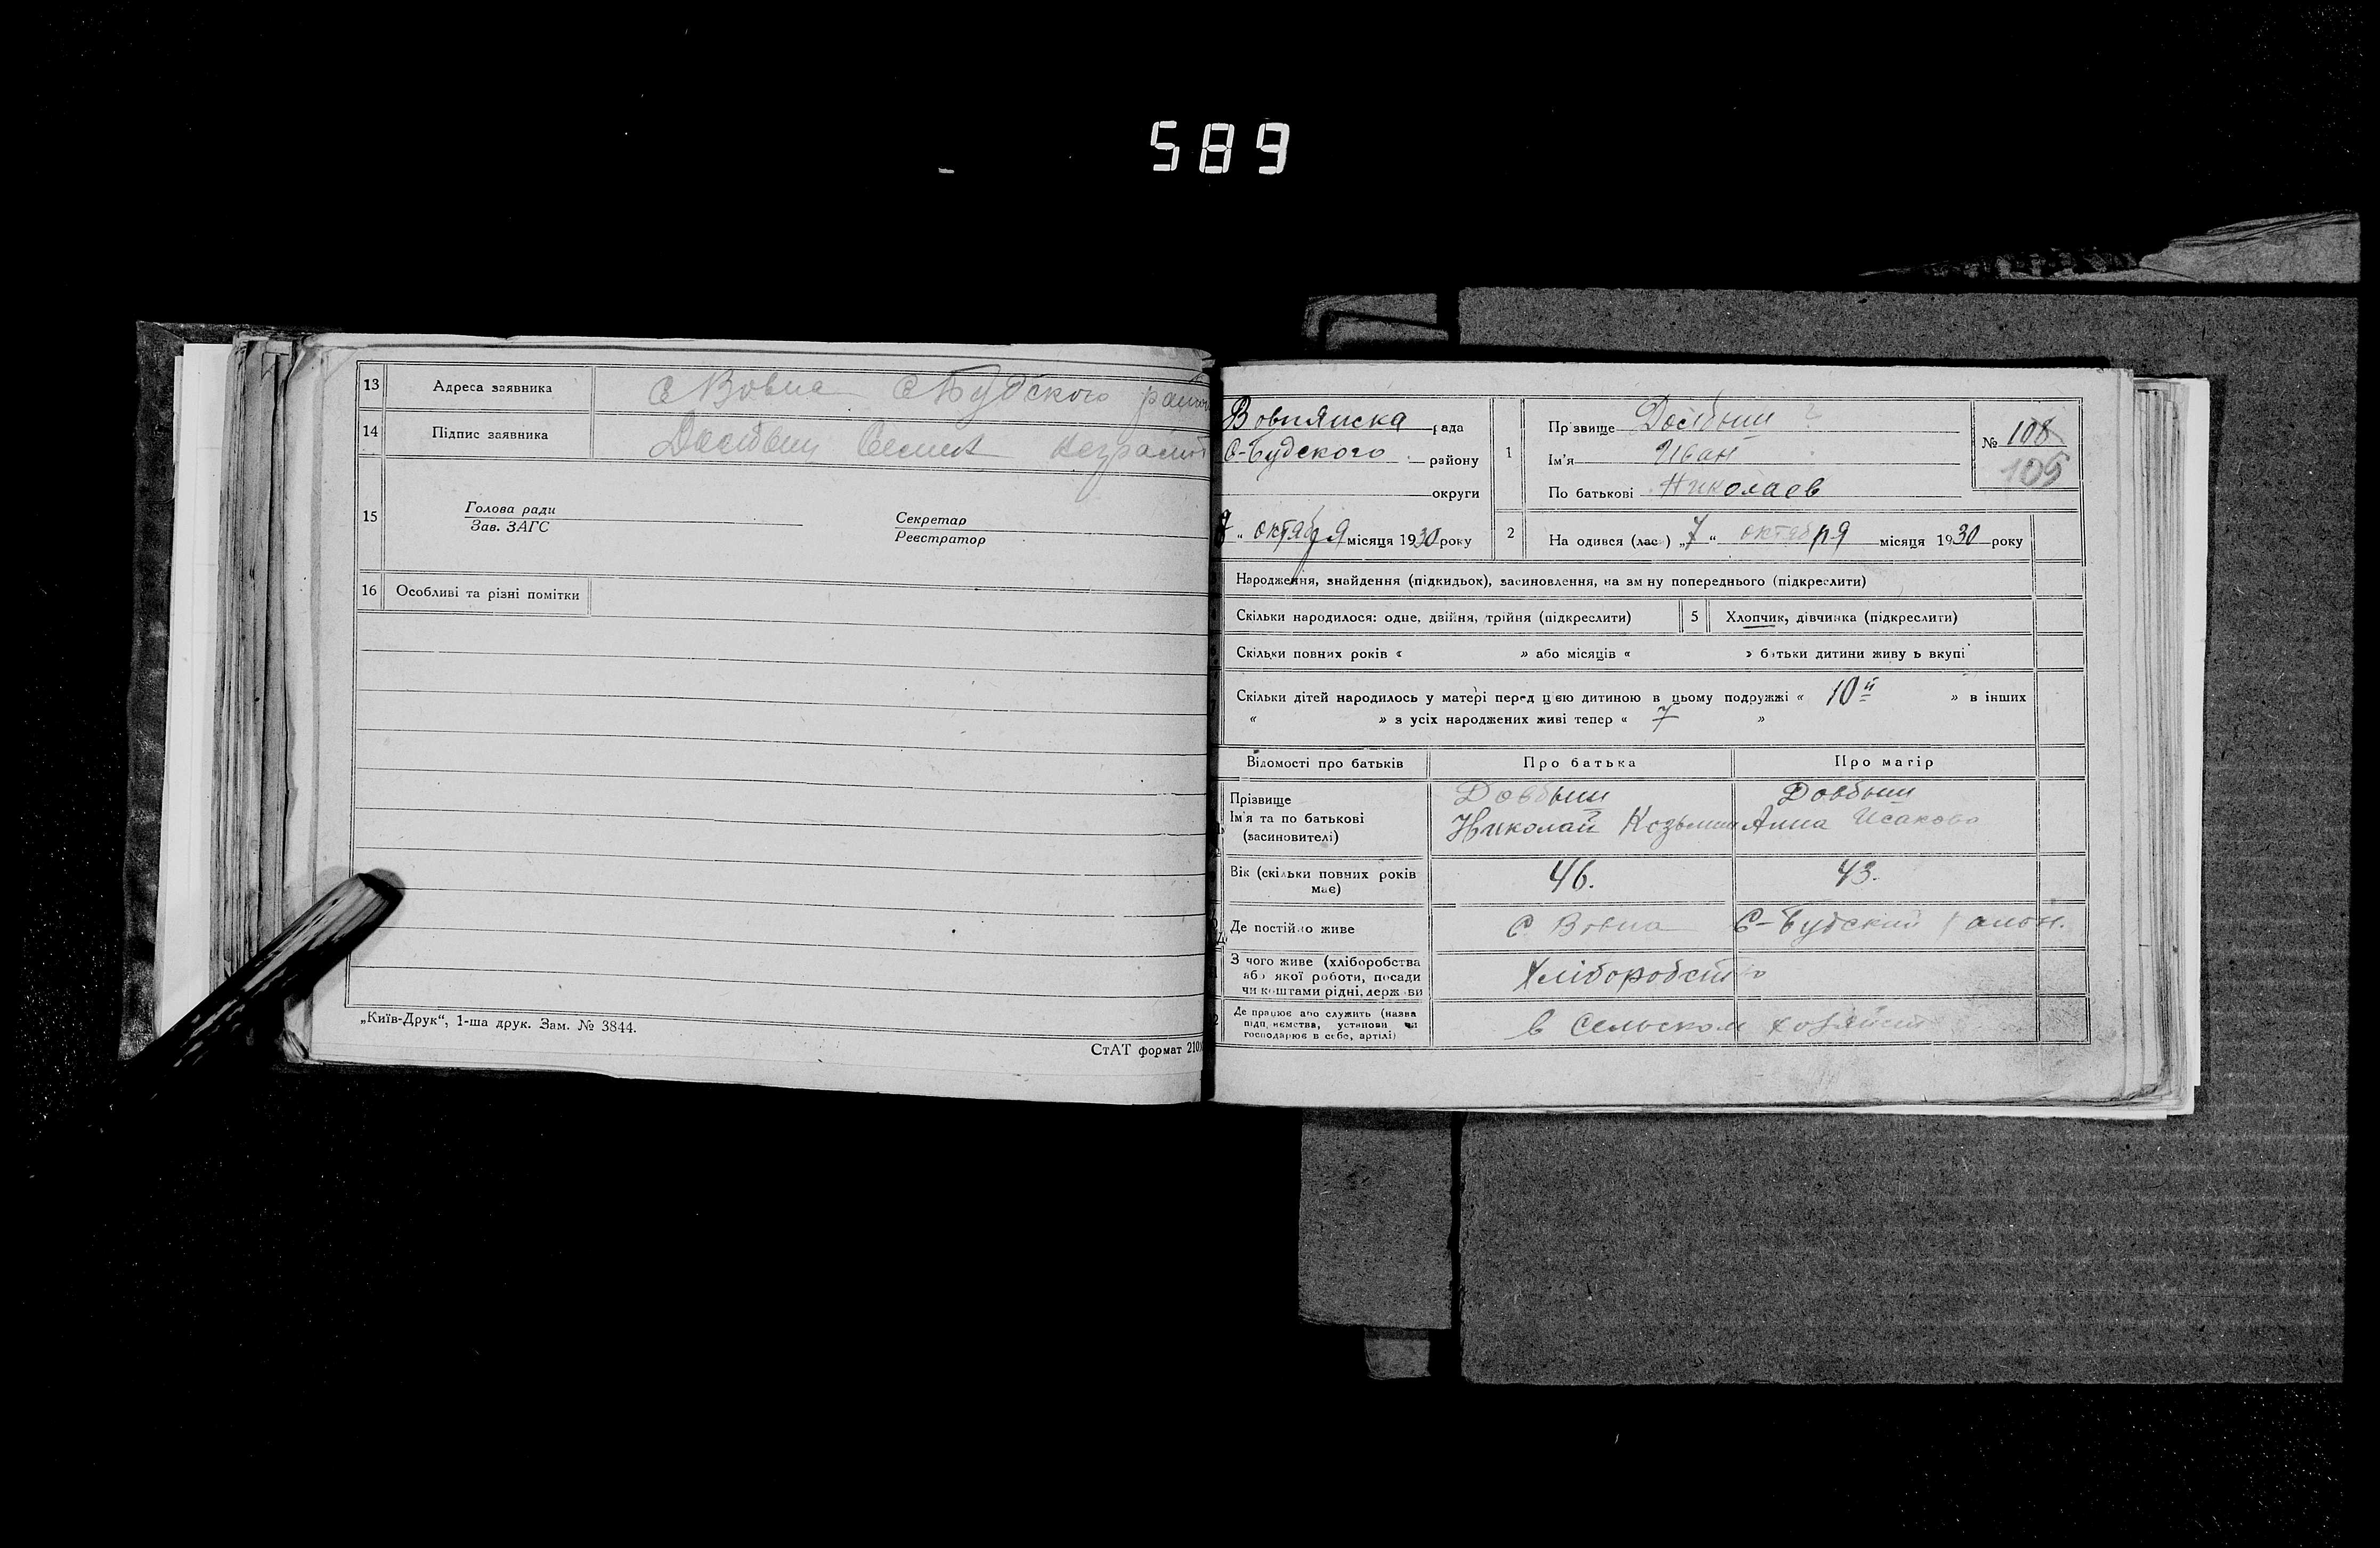 589
13 Адреса заявника С Вовна С Будского район
14 Підпис заявника неграмот
15 Голова ради
Зав. ЗАГС
Секретар
Реєстратор
16 Особливі та різні помітки
„Київ-Друк“, 1-ша друк. Зам. № 3844.
СтАТ формат 210
Вовнянска рада
С-Будского району
округи
„ октября місяця 1930 року
1 Прізвище
Ім'я Иван
По батькові Николаев
№ 108
105
2 На одився (лас ) „7“ октября місяця 1930 року
Народження, знайдення (підкидьок), засиновлення, на зм ну попереднього (підкреслити)
Скільки народилося: одне, двійня, трійня (підкреслити)
5 Хлопчик, дівчинка (підкреслити)
Скільки повних років « » або місяців « » батьки дитини живу ь вкупі
Скільки дітей народилось у матері перед цією дитиною в цьому подружжі « 10й » в інших
« » з усіх народжених живі тепер « 7 »
Відомості про батьків Про батька Про матір
Прізвище
Ім'я та по батькові
(засиновителі)
Довбыш
Николай Козьмин
Довбыш
Анна Исакова
Вік (скільки повних років
має)
46. 43.
Де постійно живе С Вовна С-Будский район.
З чого живе (хліборобства
або якої роботи, посади
чи коштами рідні, держ ви
Хліборобство
Де працює або служить (назва
підп иємства, установи чи
господарює в себе, артілі)
в Сельском хозяйст